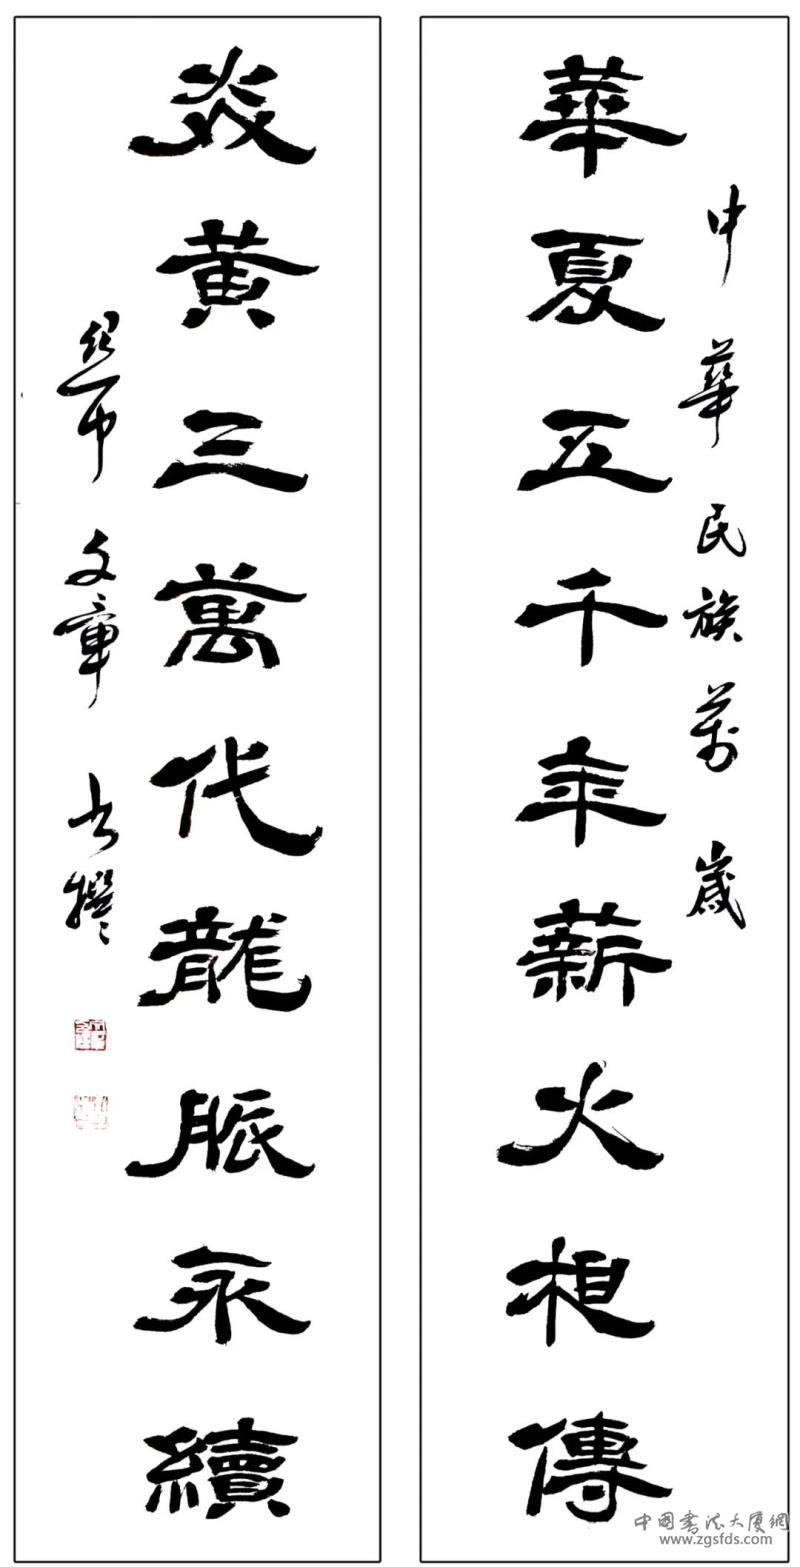 中華民族萬歲
華夏五千年薪火相傳
炎黄三萬代龍脈永續
文章书撰
中國書法大廈網
www.zgsfds.com